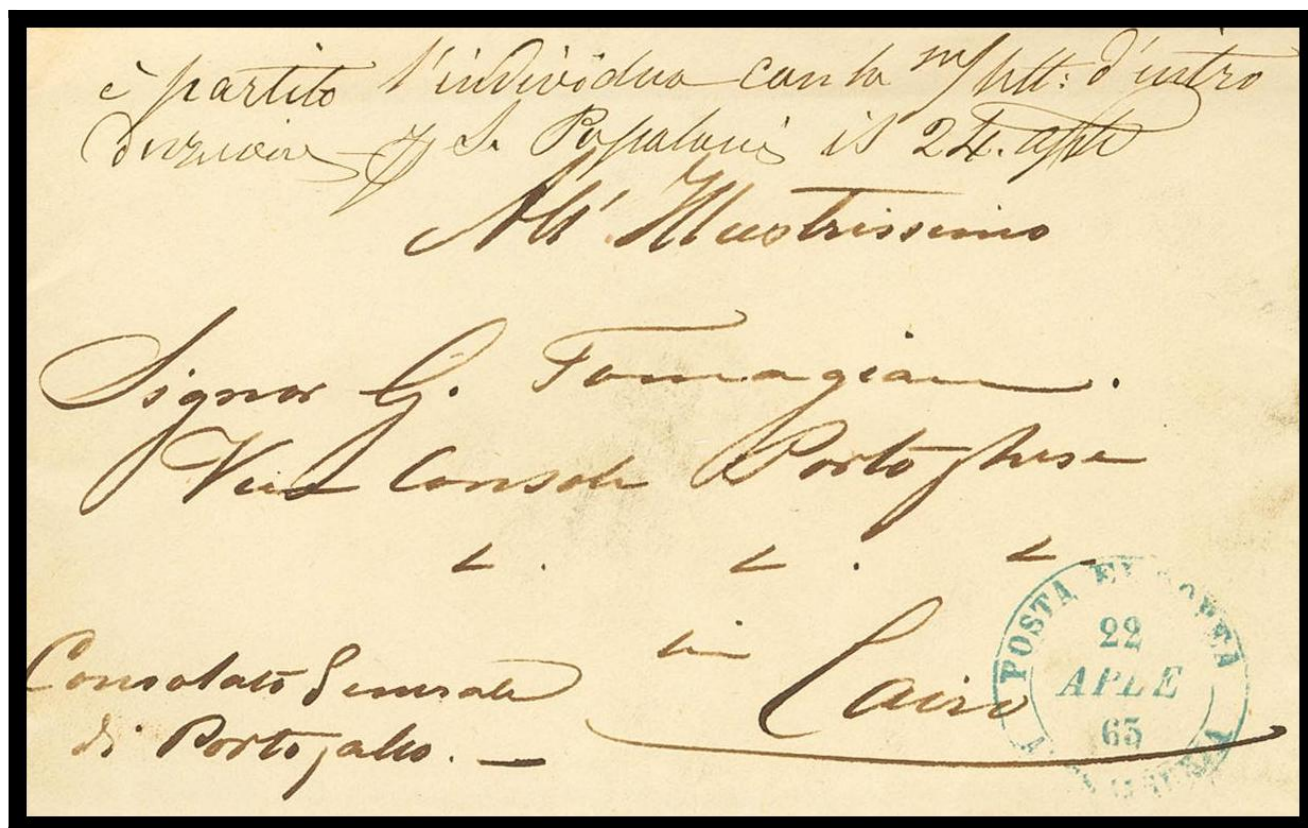 è partito l'individuo con la m/ lett: d'intro
duzione p S. Popolani il 24. aple
All' Illustrissimo
Signor G. Tomagian.
Vice Console Portoghese
L. L. L.
in Cairo
Consolato Generale
di Portogallo. —
POSTA EUROPEA
22
APLE
65